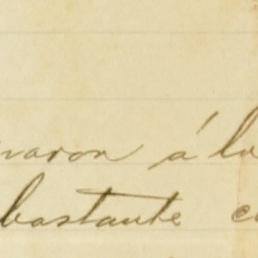 varon á la
bastante